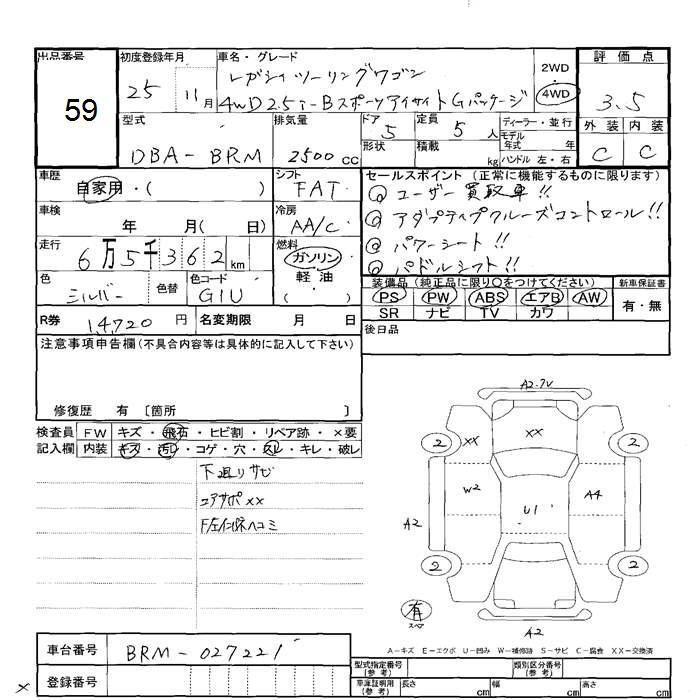 出品番号 59
初度登録年月 25 11月
車名・グレード
レガシィツーリングワゴン
4WD 2.5i-Bスポーツアイサイト Gパッケージ
2WD
4WD
評価点
3.5
外装 内装
C C
型式
DBA-BRM
排気量
2500cc
ドア 5
形状
定員 5人
積載 kg
ディーラー・並行
モデル年式 年
ハンドル 左・右
車歴
自家用・( )
シフト
FAT
車検
年 月( 日)
冷房
AA/C
走行
6万5千362km
燃料
ガソリン
軽油
( )
色
シルバー
色替
色コード
G1U
セールスポイント(正常に機能するものに限ります)
ユーザー買取車!!
アダプティブクルーズコントロール!!
パワーシート!!
パドルシフト!!
装備品(純正品に限り○をつけてください) 新車保証書
PS PW ABS エアB AW 有・無
SR ナビ TV カワ
R券 14,720円
名変期限 月 日
後日品
注意事項申告欄(不具合内容等は具体的に記入して下さい)
修復歴 有 〔箇所 〕
検査員 FW キズ・飛石・ヒビ割・リペア跡・×要
記入欄 内装 キズ・汚レ・コゲ・穴・スレ・キレ・破レ
下廻りサビ
コアサポ××
ヘコミ
A2.
××
××
2
2
W2
A4
U1
A2
2
2
有
A2
A-キズ E-エクボ U-凹み W-補修跡 S-サビ C-腐食 XX-交換済
車台番号 BRM-027221
登録番号
型式指定番号(参考)
類別区分番号(参考)
車庫証明用(参考) 長さ cm 幅 cm 高さ cm
×